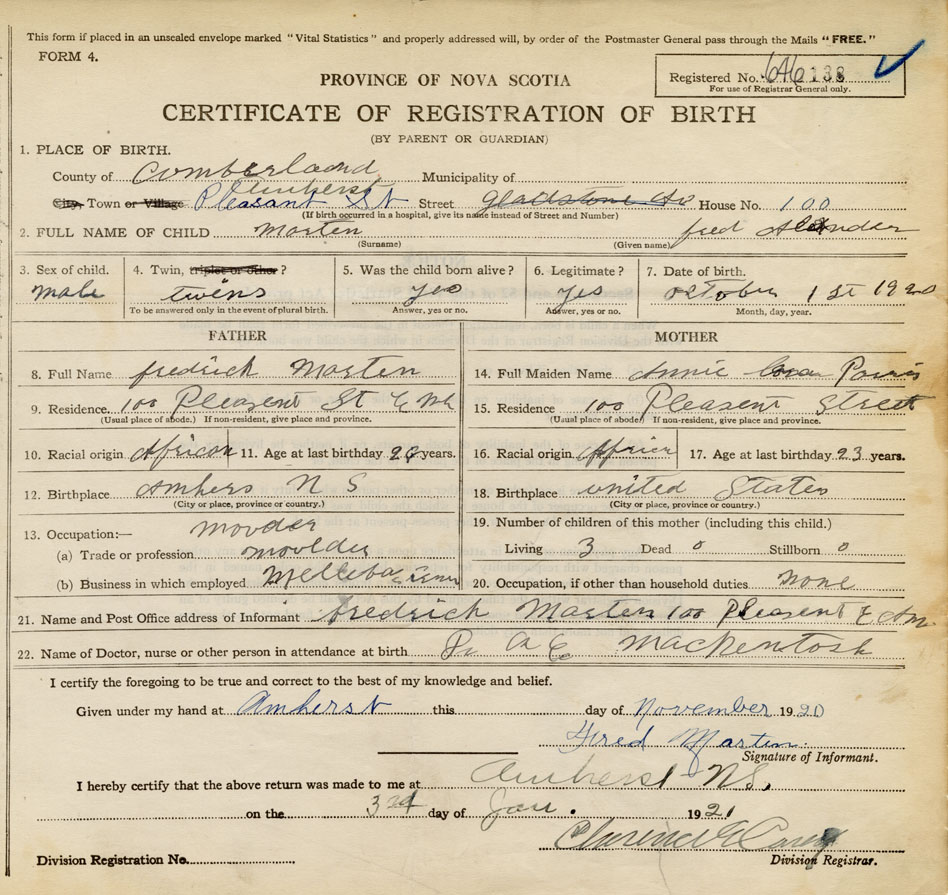 This form if placed in an unsealed envelope marked "Vital Statistics" and properly addressed will, by order of the Postmaster General pass through the Mails "FREE."
FORM 4.
PROVINCE OF NOVA SCOTIA
Registered No. 646138
For use of Registrar General only.
CERTIFICATE OF REGISTRATION OF BIRTH
(BY PARENT OR GUARDIAN)
1. PLACE OF BIRTH.
County of Cumberland Municipality of
Amherst
City, Town or Village Pleasant St Street Gladstone House No. 100
(If birth occurred in a hospital, give its name instead of Street and Number)
2. FULL NAME OF CHILD Marten fred
(Surname) (Given name)
3. Sex of child. 4. Twin, triplet or other? 5. Was the child born alive? 6. Legitimate? 7. Date of birth.
Male twins yes yes October 1 St 1920
To be answered only in the event of plural birth. Answer, yes or no. Answer, yes or no. Month, day, year.
FATHER MOTHER
8. Full Name fredrick Marten 14. Full Maiden Name Annie
9. Residence. 100 Pleasent St 15. Residence 100 Pleasent Street
(Usual place of abode.) If non-resident, give place and province. (Usual place of abode) If non-resident, give place and province.
10. Racial origin African 11. Age at last birthday years. 16. Racial origin 17. Age at last birthday 23 years.
12. Birthplace Amhers N S 18. Birthplace united States
(City or place, province or country.) (City or place, province or country.)
13. Occupation:— 19. Number of children of this mother (including this child.)
(a) Trade or profession moulder Living 3 Dead 0 Stillborn 0
(b) Business in which employed 20. Occupation, if other than household duties. none
21. Name and Post Office address of Informant fredrick Marten 100 Pleasent
22. Name of Doctor, nurse or other person in attendance at birth Dr A E Mackentosh
I certify the foregoing to be true and correct to the best of my knowledge and belief.
Given under my hand at Amherst this day of November 1920
Fred Marten
Signature of Informant.
I hereby certify that the above return was made to me at Amherst N.S.
on the 3rd day of Jan. 1921
Clarence E Casey
Division Registration No. Division Registrar.